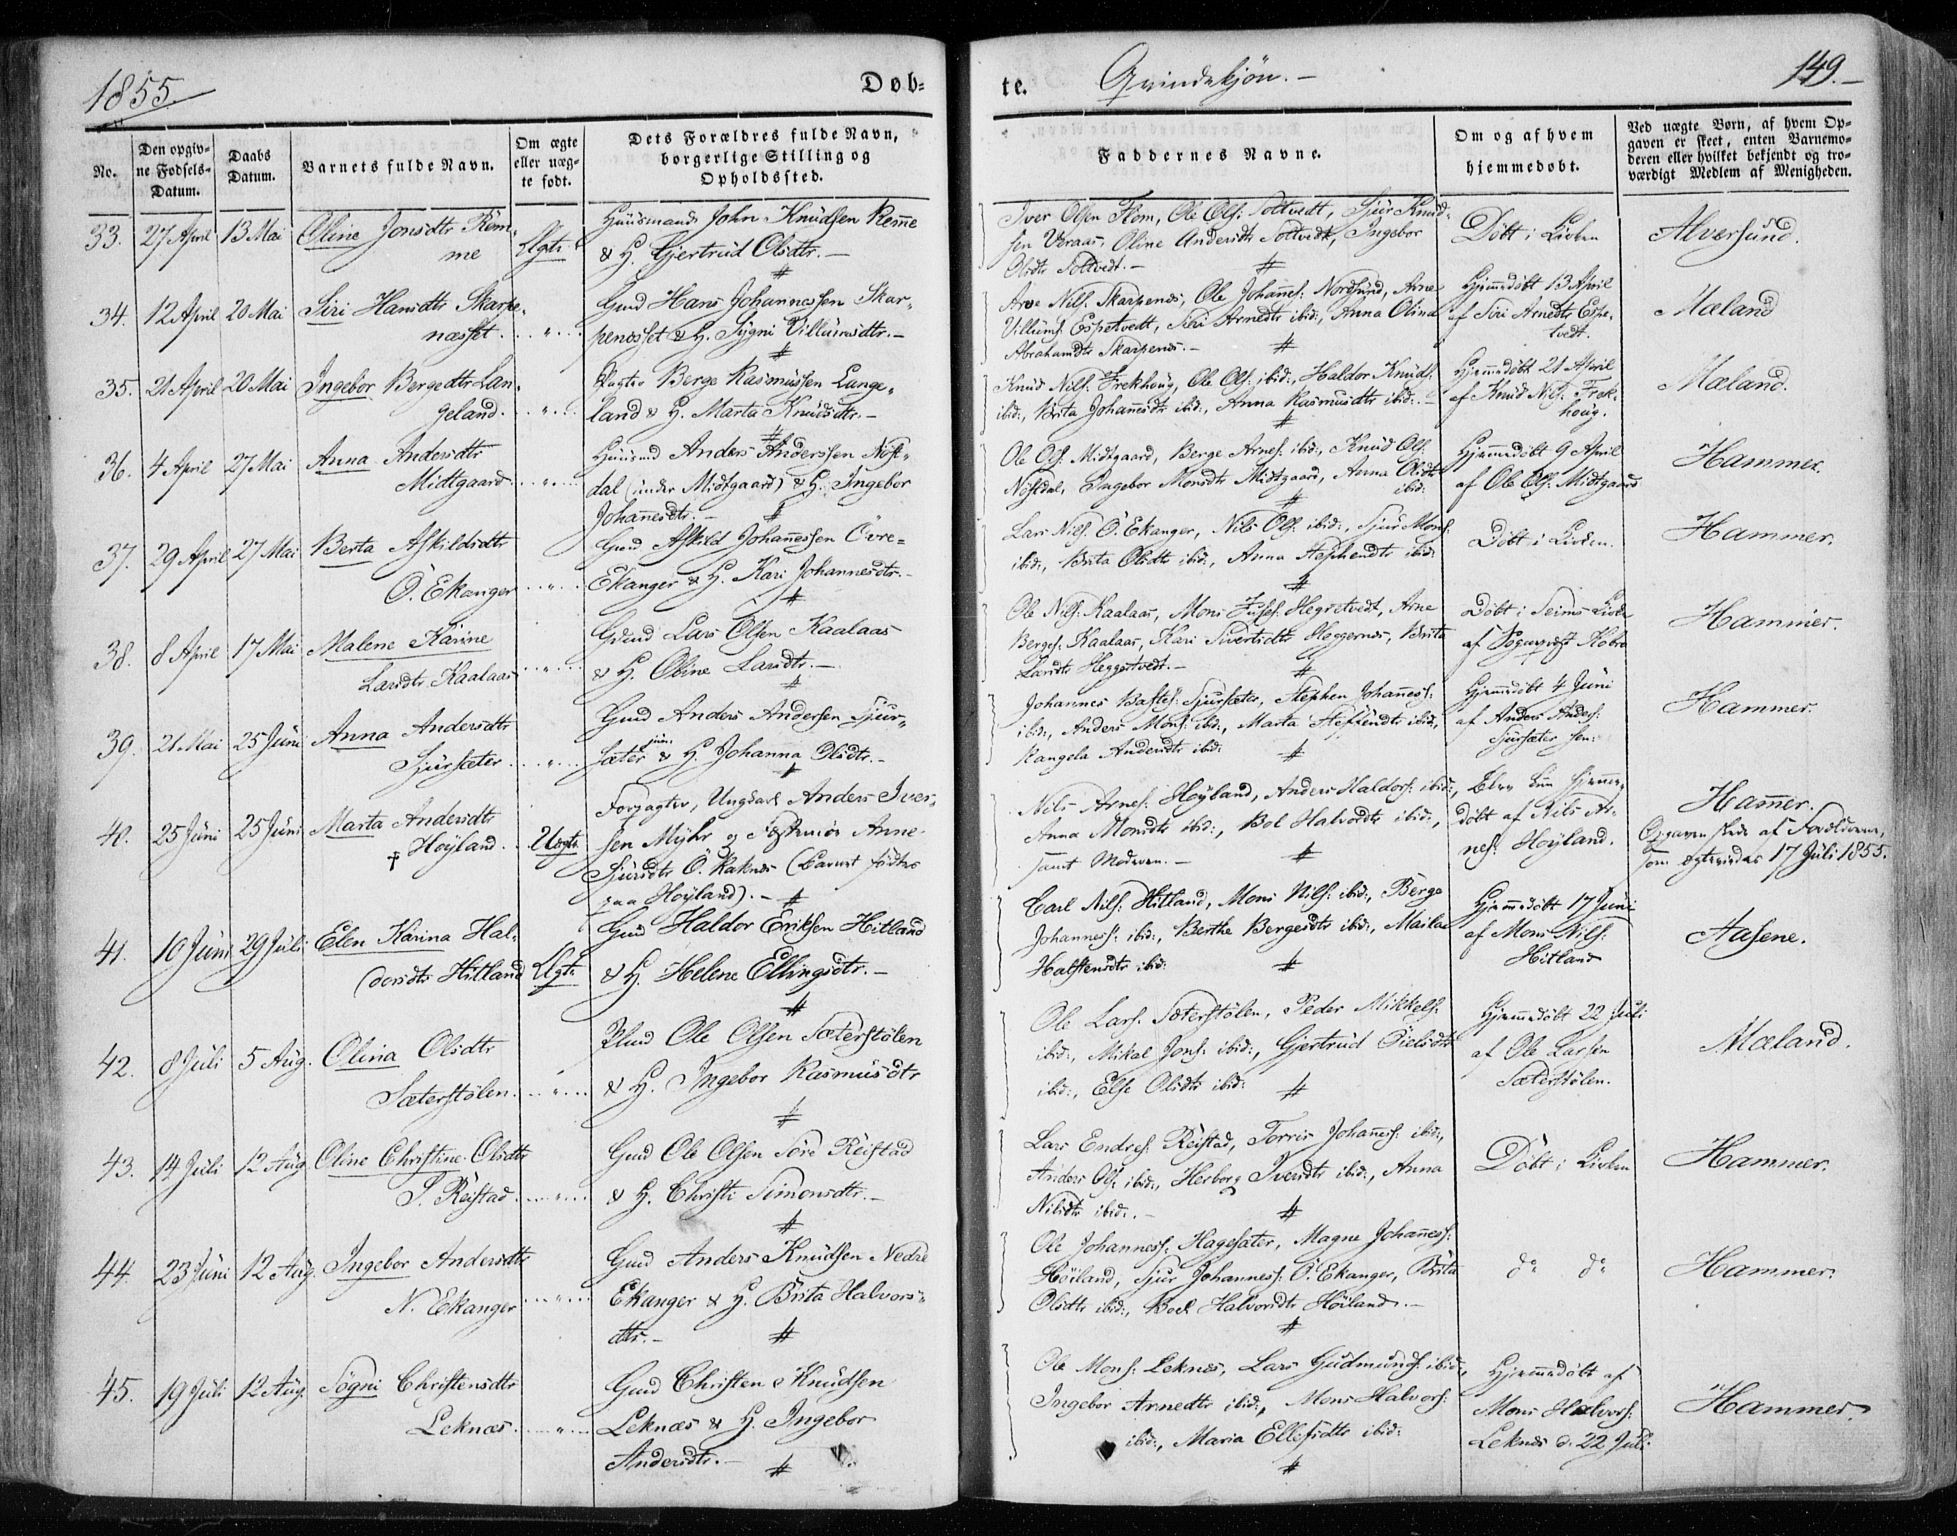 1855.
Døb-
te.
Qvindekjön.-
149.-
No.
Den opgiv-
ne Fødsels-
Datum.
Daabs
Datum.
Barnets fulde Navn.
Om ægte
eller uæg-
te født.
Dets Forældres fulde Navn,
borgerlige Stilling og
Opholdssted.
Faddernes Navne.
Om og af hvem
hjemmedøbt.
Ved uægte Børn, af hvem Op-
gaven er skeet, enten Barnemo-
deren eller hvilket bekjendt og tro-
værdigt Medlem af Menigheden.
33. 27 April 13 Mai Oline Jonsdtr Röm-
me
Ægte
Huusmand John Knudsen Rømme
& H. Gjertrud Olsdtr.-
Iver Olsen Flom, Ole Ols: Toltvedt, Sjur Knud-
sen Veraas, Oline Andersdtr Toltvedt, Ingebor
Olsdtr Toltvedt.-
Döbt i Kirken
Alversund.
34. 12 April 20 Mai Siri Hansdtr Skarpe-
næsset.
Gmd Hans Johannessen Skar-
penesset & H. Sygni Villumsdtr.-
Arve Nils: Skarpenes, Ole Johañes: Nordsund, Arne
Villums: Espetvedt, Siri Arnedtr ibid:, Anna Olina
Abrahamsdtr Skarpenes.-
Hjemmedöbt 13 April
af Siri Arnedtr Espe-
tvedt.
Mæland
35. 21 April 20 Mai Ingebor Bergedtr Lan-
geland.
Berge Rasmussen Lange-
land & H. Marta Knudsdtr.-
Knud Nils: Frekhoug, Ole Ols: ibid:, Haldor Knuds:
ibid:, Brita Johañesdtr ibid:, Anna Rasmusdtr ibid:.-
Hjemmedöbt 21 April
af Knud Nils: Frek-
houg.
Mæland.
36. 4 April 27 Mai Anna Andersdtr
Midtgaard
Huusmd Anders Anderssen Nöst-
dal (under Midtgaard) & H. Ingebor
Johañesdtr.-
Ole Ols: Midtgaard, Berge Arnes: ibid:, Knud Ols:
Nöstdal, Ingebor Monsdtr Midtgaard, Anna Olsdtr
ibid:
Hjemmedöbt 9 April
af Ole Ols: Midtgaard
Hammer.
37. 29 April 27 Mai Berta Askildsdtr
Ö. Ekanger
Gmd Askild Johañessen Övre-
Ekanger & H. Kari Johannesdtr.-
Lars Nils: Ö. Ekanger, Nils Ols: ibid:, Sjur Mons:
ibid:, Brita Olsdtr ibid:, Anna Stephensdtr ibid:
Döbt i Kirken.
Hammer.
38. 8 April 17 Mai Malene Karine
Larsdtr Kaalaas
Gmd Lars Olsen Kaalaas
& H. Oline Larsdtr.-
Ole Nils: Kaalaas, Mons Hegretvedt, Arne
Berges: Kaalaas, Kari Sivertsdtr Heggernes, Brita
Larsdtr Heggetvedt.-
Döbt i Seims Kirke
af Sogneprest Kobro
Hammer.
39. 21 Mai 25 Juni Anna Andersdtr
Sjursæter
Gmd Anders Andersen Sjur-
sæter jun: & H. Johanna Olsdtr.-
Johannes Bastes: Sjursæter, Stephen Johañess:
ibid:, Anders Mons: ibid:, Marta Steffensdtr ibid:,
Rangela Andersdtr ibid:
Hjemmedöbt 4 Juni
af Anders Anders:
Sjursæter sen:
Hammer.
40. 25 Juni 25 Juni Marta Andersdtr
† Höyland.
Uægte
Forpagter, Ungkarl Anders Iver-
sen Myhr og Anne
Sjursdtr Ö. Raknes (Barnet födtes
paa Höyland).-
Nils Arnes: Höyland, Anders Haldors: ibid:,
Anna Monsdtr ibid:, Bol Halvordtr ibid:,
samt Moderen.-
Blev kun hjemme-
döbt af Nils Ar-
nes: Höyland.
Hamer.
Opgaven skede af Forældrene,
som ægteviedes 17 Juli 1855.
41. 10 Juni 29 Juli Elen Karina Hal-
dorsdtr Hitland
Ægte
Gmd Haldor Eriksen Hitland
& H. Helene Ellingsdtr.-
Carl Nils: Hitland, Mons Nils: ibid:, Berge
Johanness: ibid:, Berthe Bergesdtr ibid:,
Halstensdtr ibid:
Hjemmedöbt 17 Juni
af Mons Nils:
Hitland
Aasene.
42. 8 Juli 5 Aug. Olina Olsdtr
Sæterstölen.
Plmd Ole Olsen Sæterstölen
& H. Ingebor Rasmusdtr
Ole Lars: Sæterstölen, Peder Mikkels:
ibid:, Mikal Jons: ibid:, Gjertrud
ibid:, Else Olsdtr ibid:
Hjemmedöbt 22 Juli
af Ole Larsen
Sæterstölen.
Mæland.
43. 14 Juli 12 Aug. Oline Christine Olsdtr
S. Reistad.
Gmd Ole Olsen Söre Reistad
& H. Christi Simonsdtr.-
Lars Endres: Reistad, Torris Johañes: ibid:,
Anders Ols: ibid:, Herborg Iversdtr ibid:, Anna
Nilsdtr ibid:.-
Döbt i Kirken
Hammer.
44. 23 Juni 12 Aug. Ingebor Andersdtr
N. Ekanger
Gmd Anders Knudsen Nedre
Ekanger & H. Brita Halvors-
dtr.-
Ole Johanness: Hagesæter, Magne Johañess:
Höiland, Sjur Johanness: Ö. Ekanger, Brita
Olsdtr ibid:, Boel Halvorsdtr Höiland.-
do do
Hammer.
45. 19 Juli 12 Aug. Sögni Christensdtr
Leknæs.
Gmd Christen Knudsen
Leknæs & H. Ingebor
Andersdtr.-
Ole Mons: Leknes, Lars Gudmunds: ibid:,
Ingebor Arnedtr ibid:, Mons Halvors:
ibid:, Maria Ellefsdtr ibid:
Hjemmedöbt af
Mons Halvors:
Leknes d. 22 Juli
Hammer.